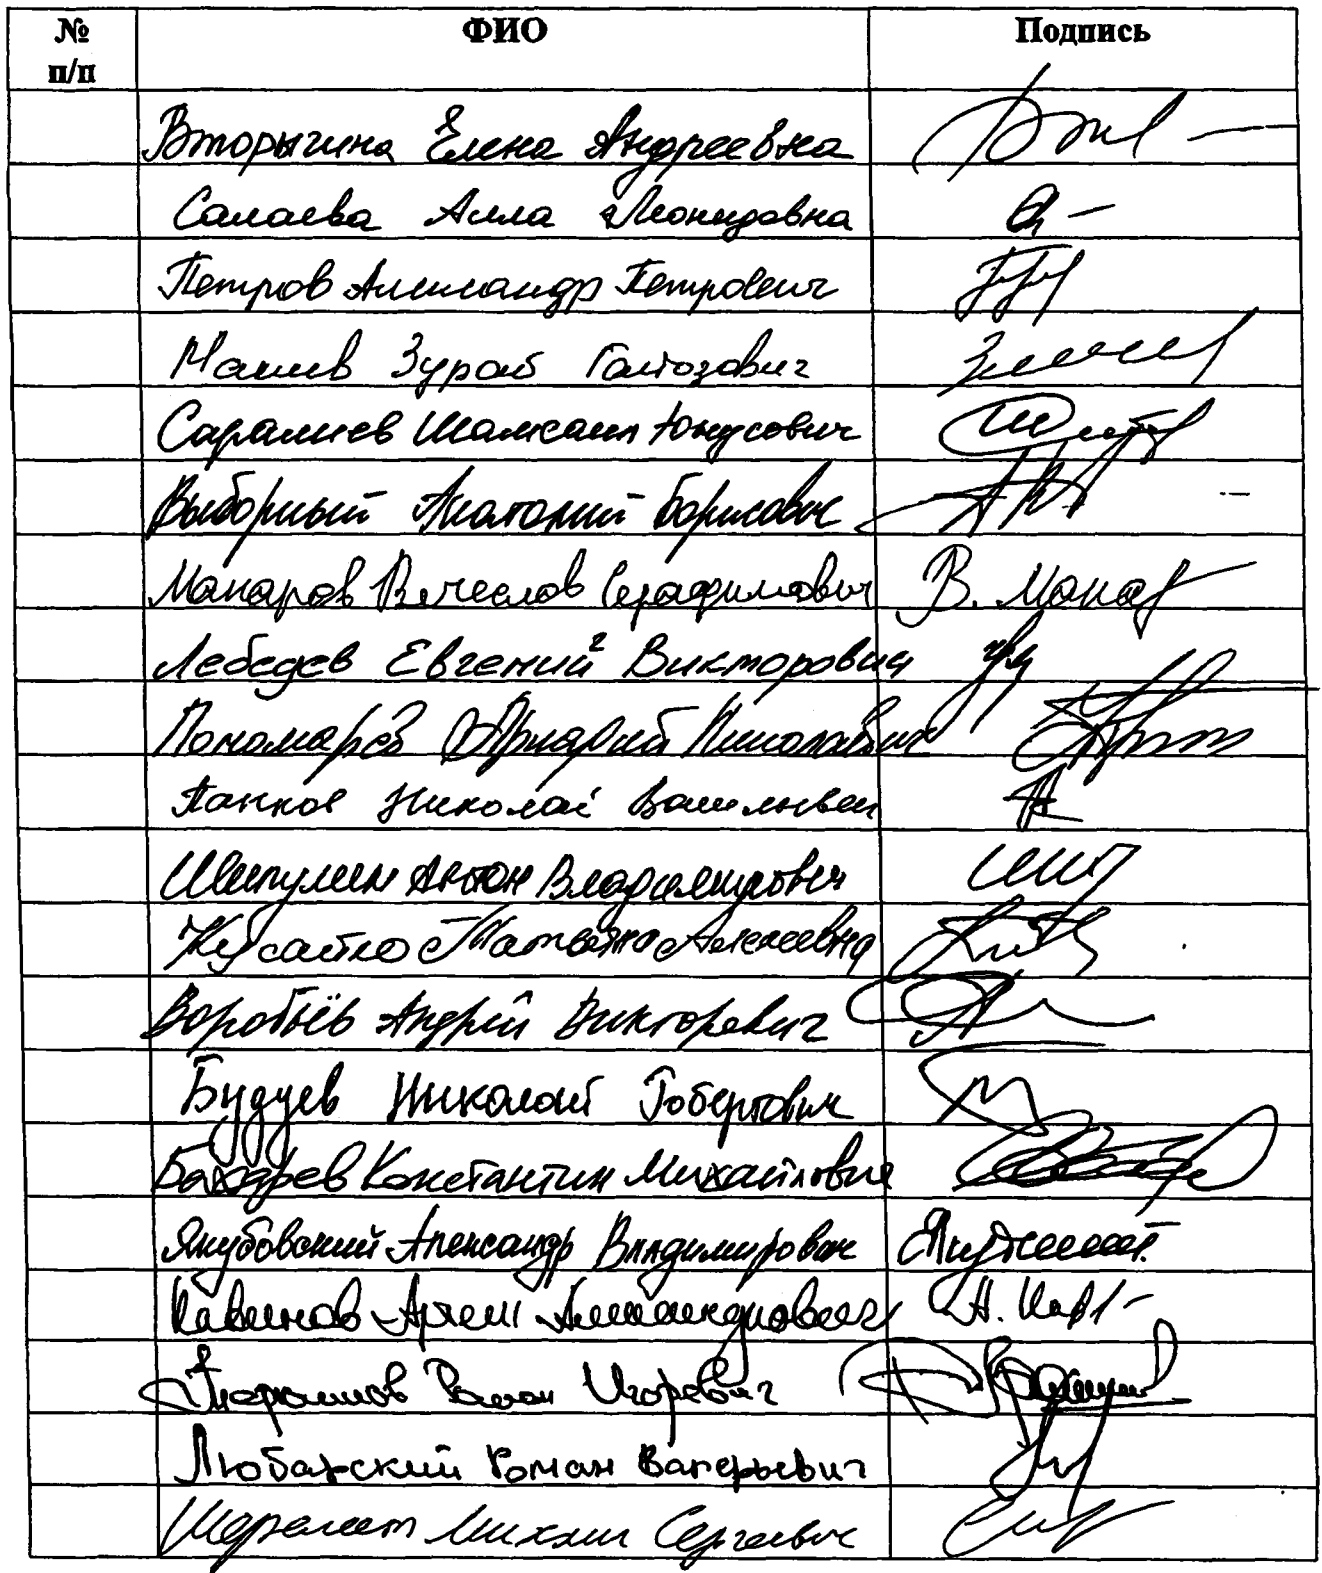 № п/п ФИО Подпись
Вторыгина Елена Андреевна
Салаева Алла Леонидовна
Петров Александр Петрович
Макиев Зураб Гайозович
Саралиев Шамсаил Юнусович
Выборный Анатолий Борисович
Макаров Вячеслав Серафимович В. Макар
Лебедев Евгений Викторович
Пономарёв Аркадий Николаевич
Панков Николай Васильевич
Шипулин Антон Владимирович
Кусайко Татьяна Алексеевна
Воробьёв Андрей Викторович
Будуев Николай Робертович
Бахарев Константин Михайлович
Якубовский Александр Владимирович
Кавинов Артём Александрович
Романов Роман Игоревич
Любарский Роман Валерьевич
Шеремет Михаил Сергеевич